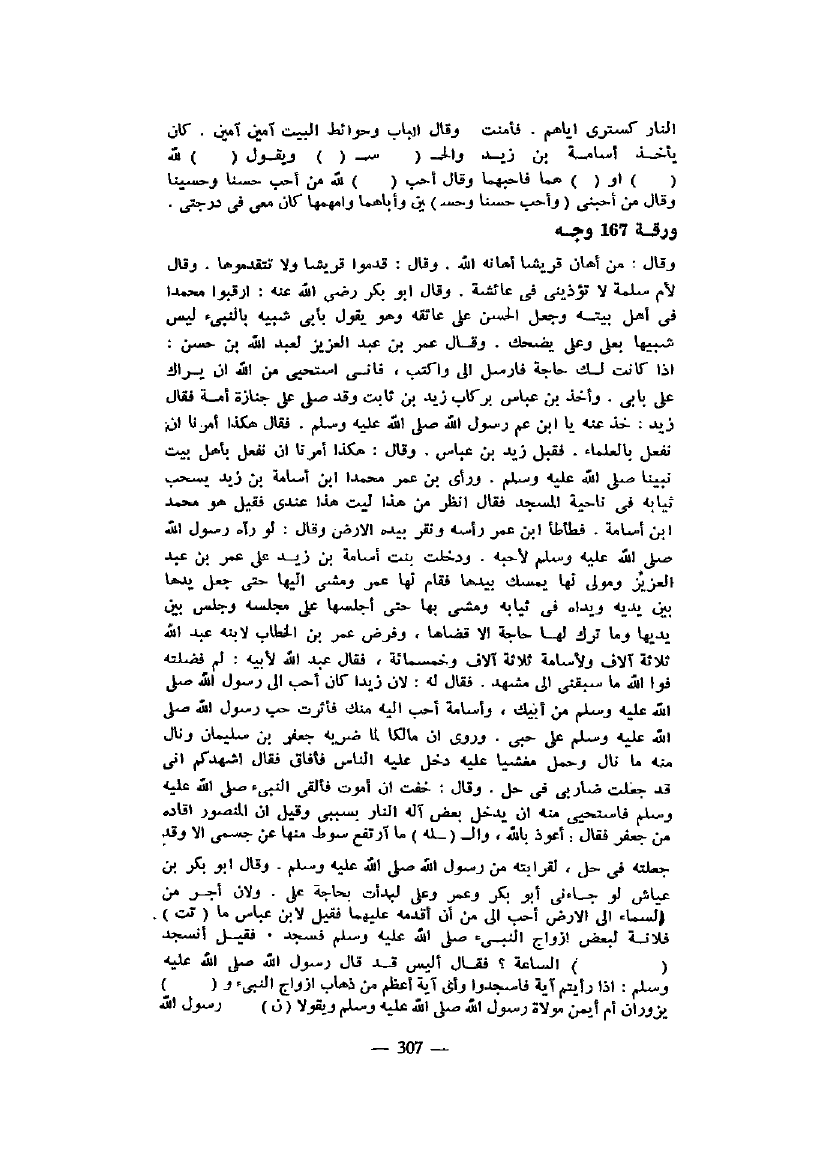 النار كسترى اياهم . فأمنت وقال الباب وحوائط البيت آمين آمين . كان
يأخذ أسامة بن زيد والحـ ( سـ ( ) ويقول ( ) لله
( ) او ( ) هما فاحبهما وقال أحب ( ) لله من أحب حسنا وحسينا
وقال من أحبنى ( وأحب حسنا وحسـ ) ين وأباهما وامهمها كان معى فى درجتى .
ورقة 167 وجه
وقال : من أهان قريشا أهانه الله . وقال : قدموا قريشا ولا تتقدموها . وقال
لأم سلمة لا تؤذينى فى عائشة . وقال ابو بكر رضى الله عنه : ارقبوا محمدا
فى أهل بيته وجعل الحسن على عاتقه وهو يقول بأبى شبيه بالنبىء ليس
شبيها بعلى وعلى يضحك . وقال عمر بن عبد العزيز لعبد الله بن حسن :
اذا كانت لك حاجة فارسل الى واكتب ، فانى استحيى من الله ان يراك
على بابى . وأخذ بن عباس بركاب زيد بن ثابت وقد صلى على جنازة أمة فقال
زيد : خذ عنه يا ابن عم رسول الله صلى الله عليه وسلم . فقال هكذا أمرنا ان
نفعل بالعلماء . فقبل زيد بن عباس . وقال : هكذا أمرنا ان نفعل بأهل بيت
نبينا صلى الله عليه وسلم . ورأى بن عمر محمدا ابن أسامة بن زيد يسحب
ثيابه فى ناحية المسجد فقال انظر من هذا ليت هذا عندى فقيل هو محمد
ابن أسامة . فطأطأ ابن عمر رأسه ونقر بيده الارض وقال : لو رآه رسول الله
صلى الله عليه وسلم لأحبه . ودخلت بنت أسامة بن زيد على عمر بن عبد
العزيز ومولى لها يمسك بيدها فقام لها عمر ومشى اليها حتى جعل يدها
بين يديه ويداه فى ثيابه ومشى بها حتى أجلسها على مجلسه وجلس بين
يديها وما ترك لها حاجة الا قضاها ، وفرض عمر بن الخطاب لابنه عبد الله
ثلاثة آلاف ولأسامة ثلاثة آلاف وخمسمائة ، فقال عبد الله لأبيه : لم فضلته
فوا الله ما سبقنى الى مشهد . فقال له : لان زيدا كان أحب الى رسول الله صلى
الله عليه وسلم من أبيك ، وأسامة أحب اليه منك فأثرت حب رسول الله صلى
الله عليه وسلم على حبى . وروى ان مالكا لما ضربه جعفر بن سليمان ونال
منه ما نال وحمل مغشيا عليه دخل عليه الناس فأفاق فقال اشهدكم انى
قد جعلت ضاربى فى حل . وقال : خفت ان أموت فألقى النبىء صلى الله عليه
وسلم فاستحيى منه ان يدخل بعض آله النار بسببى وقيل ان المنصور اقاده
من جعفر فقال : أعوذ بالله ، والـ ( ـله ) ما آرتفع سوط منها عن جسمى الا وقد
جعلته فى حل ، لقرابته من رسول الله صلى الله عليه وسلم . وقال ابو بكر بن
عياش لو جاءنى أبو بكر وعمر وعلى لبدأت بحاجة على . ولان أجر من
السماء الى الارض أحب الى من أن أقدمه عليهما فقيل لابن عباس ما ( تت ) .
فلانة لبعض ازواج النبىء صلى الله عليه وسلم فسجد . فقيل أتسجد
( ) الساعة ؟ فقال أليس قد قال رسول الله صلى الله عليه
وسلم : اذا رأيتم آية فاسجدوا وأى آية أعظم من ذهاب ازواج النبىء و ( )
يزوران أم أيمن مولاة رسول الله صلى الله عليه وسلم ويقولا ( ن ) رسول الله
— 307 —